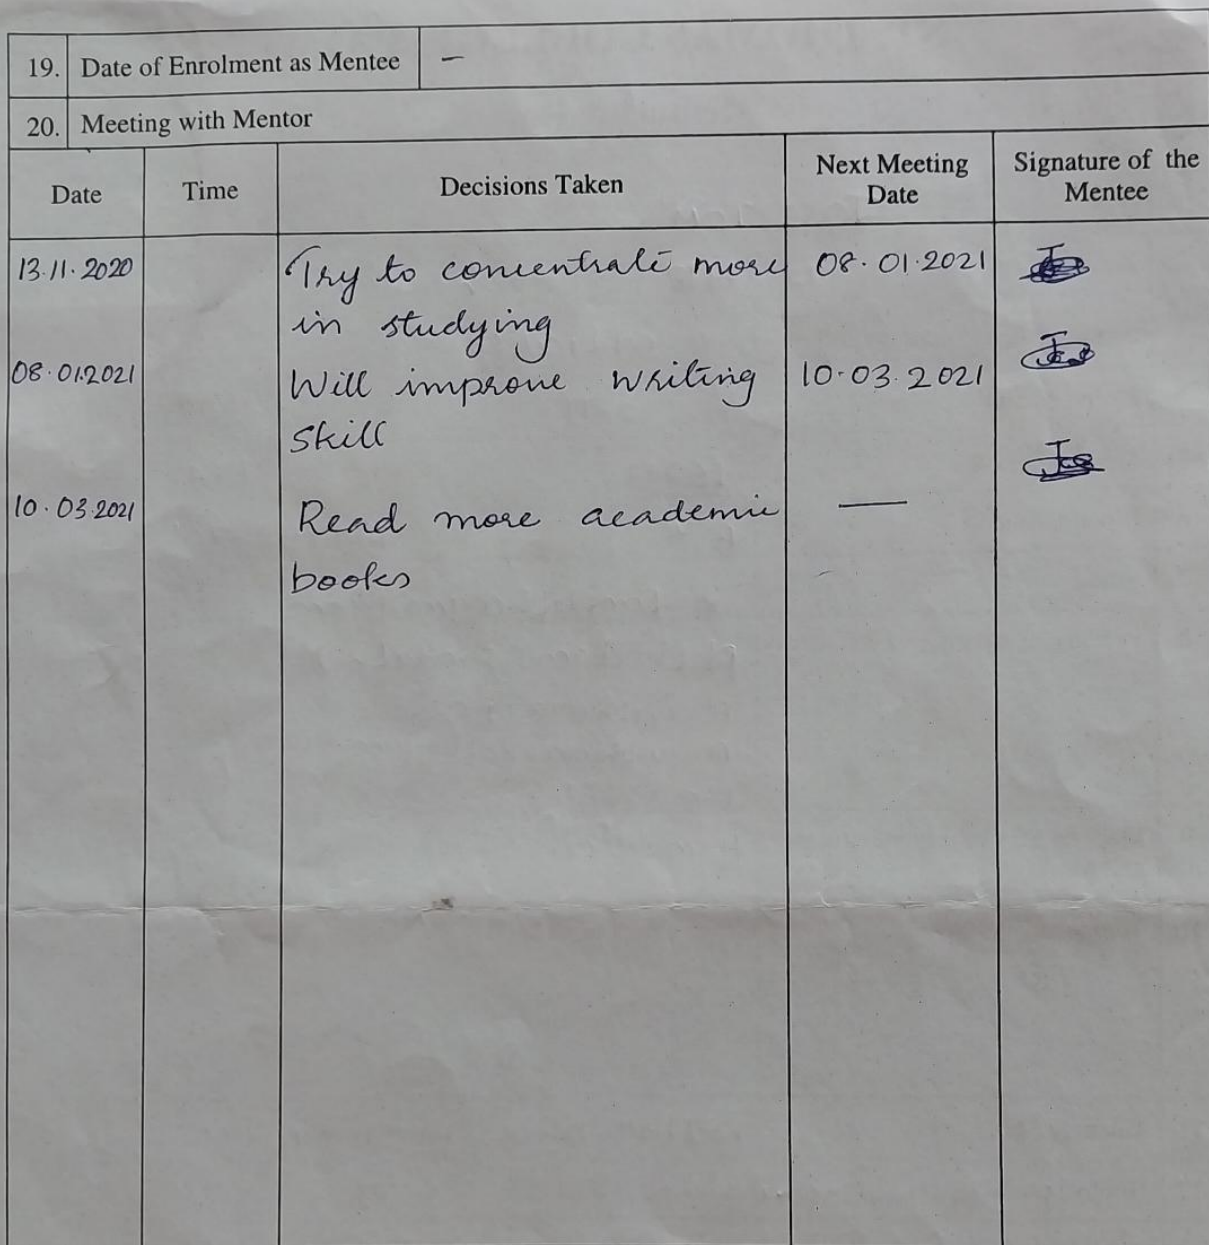 19. Date of Enrolment as Mentee —
20. Meeting with Mentor
Date Time Decisions Taken Next Meeting Date Signature of the Mentee
13.11.2020 Try to concentrate more 08.01.2021
in studying
08.01.2021 Will improve writing 10.03.2021
skill
10.03.2021 Read more academic —
books